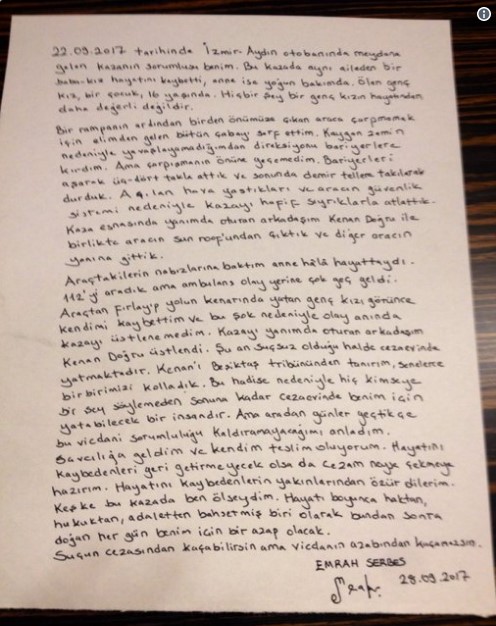 22.09.2017 tarihinde İzmir-Aydın otobanında meydana
gelen kazanın sorumlusu benim. Bu kazada aynı aileden bir
baba-kız hayatını kaybetti, anne ise yoğun bakımda. Ölen genç
kız, bir çocuk, 16 yaşında. Hiçbir şey bir genç kızın hayatından
daha değerli değildir.
Bir rampanın ardından birden önümüze çıkan araca çarpmamak
için elimden gelen bütün çabayı sarf ettim. Kaygan zemin
nedeniyle yavaşlayamadığımdan direksiyonu bariyerlere
kırdım. Ama çarpışmanın önüne geçemedim. Bariyerleri
aşarak üç-dört takla attık ve sonunda demir tellere takılarak
durduk. Açılan hava yastıkları ve aracın güvenlik
sistemi nedeniyle kazayı hafif sıyrıklarla atlattık.
Kaza esnasında yanımda oturan arkadaşım Kenan Doğru ile
birlikte aracın sun roof'undan çıktık ve diğer aracın
yanına gittik.
Araçtakilerin nabızlarına baktım anne hâlâ hayattaydı.
112'yi aradık ama ambulans olay yerine çok geç geldi.
Araçtan fırlayıp yolun kenarında yatan genç kızı görünce
kendimi kaybettim ve bu şok nedeniyle olay anında
kazayı üstlenemedim. Kazayı yanımda oturan arkadaşım
Kenan Doğru üstlendi. Şu an suçsuz olduğu halde cezaevinde
yatmaktadır. Kenan'ı Beşiktaş tribününden tanırım, senelerce
birbirimizi kolladık. Bu hadise nedeniyle hiç kimseye
bir şey söylemeden sonuna kadar cezaevinde benim için
yatabilecek bir insandır. Ama aradan günler geçtikçe
bu vicdani sorumluluğu kaldıramayacağımı anladım.
Savcılığa geldim ve kendim teslim oluyorum. Hayatını
kaybedenleri geri getirmeyecek olsa da cezam neyse çekmeye
hazırım. Hayatını kaybedenlerin yakınlarından özür dilerim.
Keşke bu kazada ben ölseydim. Hayatı boyunca haktan,
hukuktan, adaletten bahsetmiş biri olarak bundan sonra
doğan her gün benim için bir azap olacak.
Suçun cezasından kaçabilirsin ama vicdanın azabından kaçamazsın.
EMRAH SERBES
29.09.2017